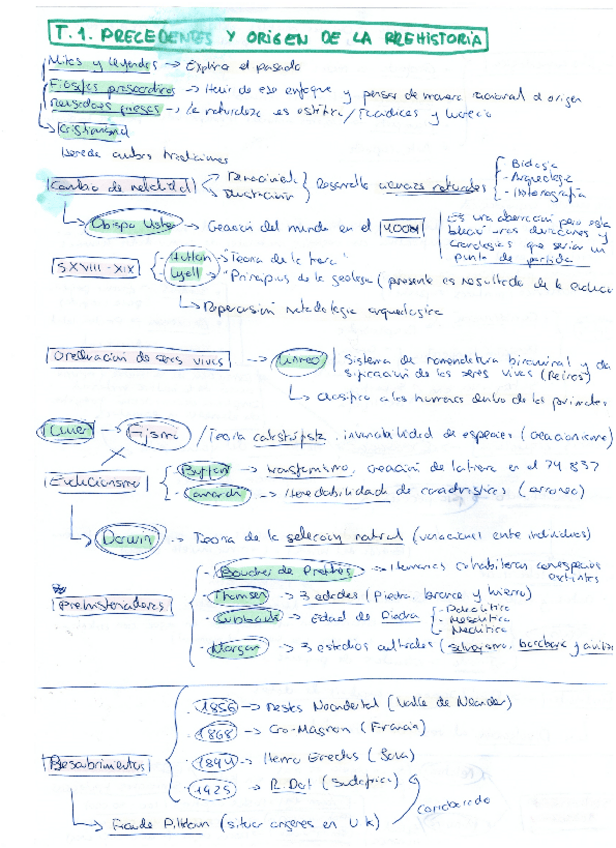 T.1. PRECEDENTES Y ORIGEN DE LA PREHISTORIA
Mitos y leyendas → Explica el pasado
Filósofos presocráticos → Huir de ese enfoque y pensar de manera racional el origen
Pensadores griegos → la naturaleza es estática /
Cristianismo
Hereda ambas tradiciones
Cambio de mentalidad
Ilustración
Desarrollo ciencias naturales
- Biología
- Arqueología
- Historiografía
Obispo → Creación del mundo en el
Es una aberración pero esta
y
cronologías que serían un
punto de partida
SXVIII-XIX
Hutton → "Teoría de la tierra"
Lyell → "Principios de la geología (presente es resultado de la
↳ Repercusión metodología arqueológica
Ordenación de seres vivos → Linneo
Sistema de nomenclatura binominal y cla
sificación de los seres vivos (Reinos)
↳ Clasifica a los humanos dentro de los primates
Cuvier → Fijismo / Teoría catastrofista, invariabilidad de especies (creacionismo)
Evolucionismo
- Buffon → transformismo, creación de la tierra en el 74 837
- Lamarck → Heredabilidad de caracteres (erróneo)
↳ Darwin → Teoría de la selección natural (variaciones entre individuos)
Prehistoriadores
- Boucher de Perthes → Humanos cohabitaron con especies
extintas
- Thomsen → 3 edades (Piedra, bronce y hierro)
- Lubbock → Edad de Piedra
- Paleolítico
- Mesolítico
- Neolítico
- Morgan → 3 estadios culturales (salvajismo, barbarie y
Descubrimientos
- 1856 → Restos Neandertal (Valle de Neander)
- 1868 → Cro-Magnon (Francia)
- → Homo Erectus (Java)
- 1925 → R. Dart (Sudáfrica)
↳ Fraude Piltdown (situar orígenes en UK)
corroborado